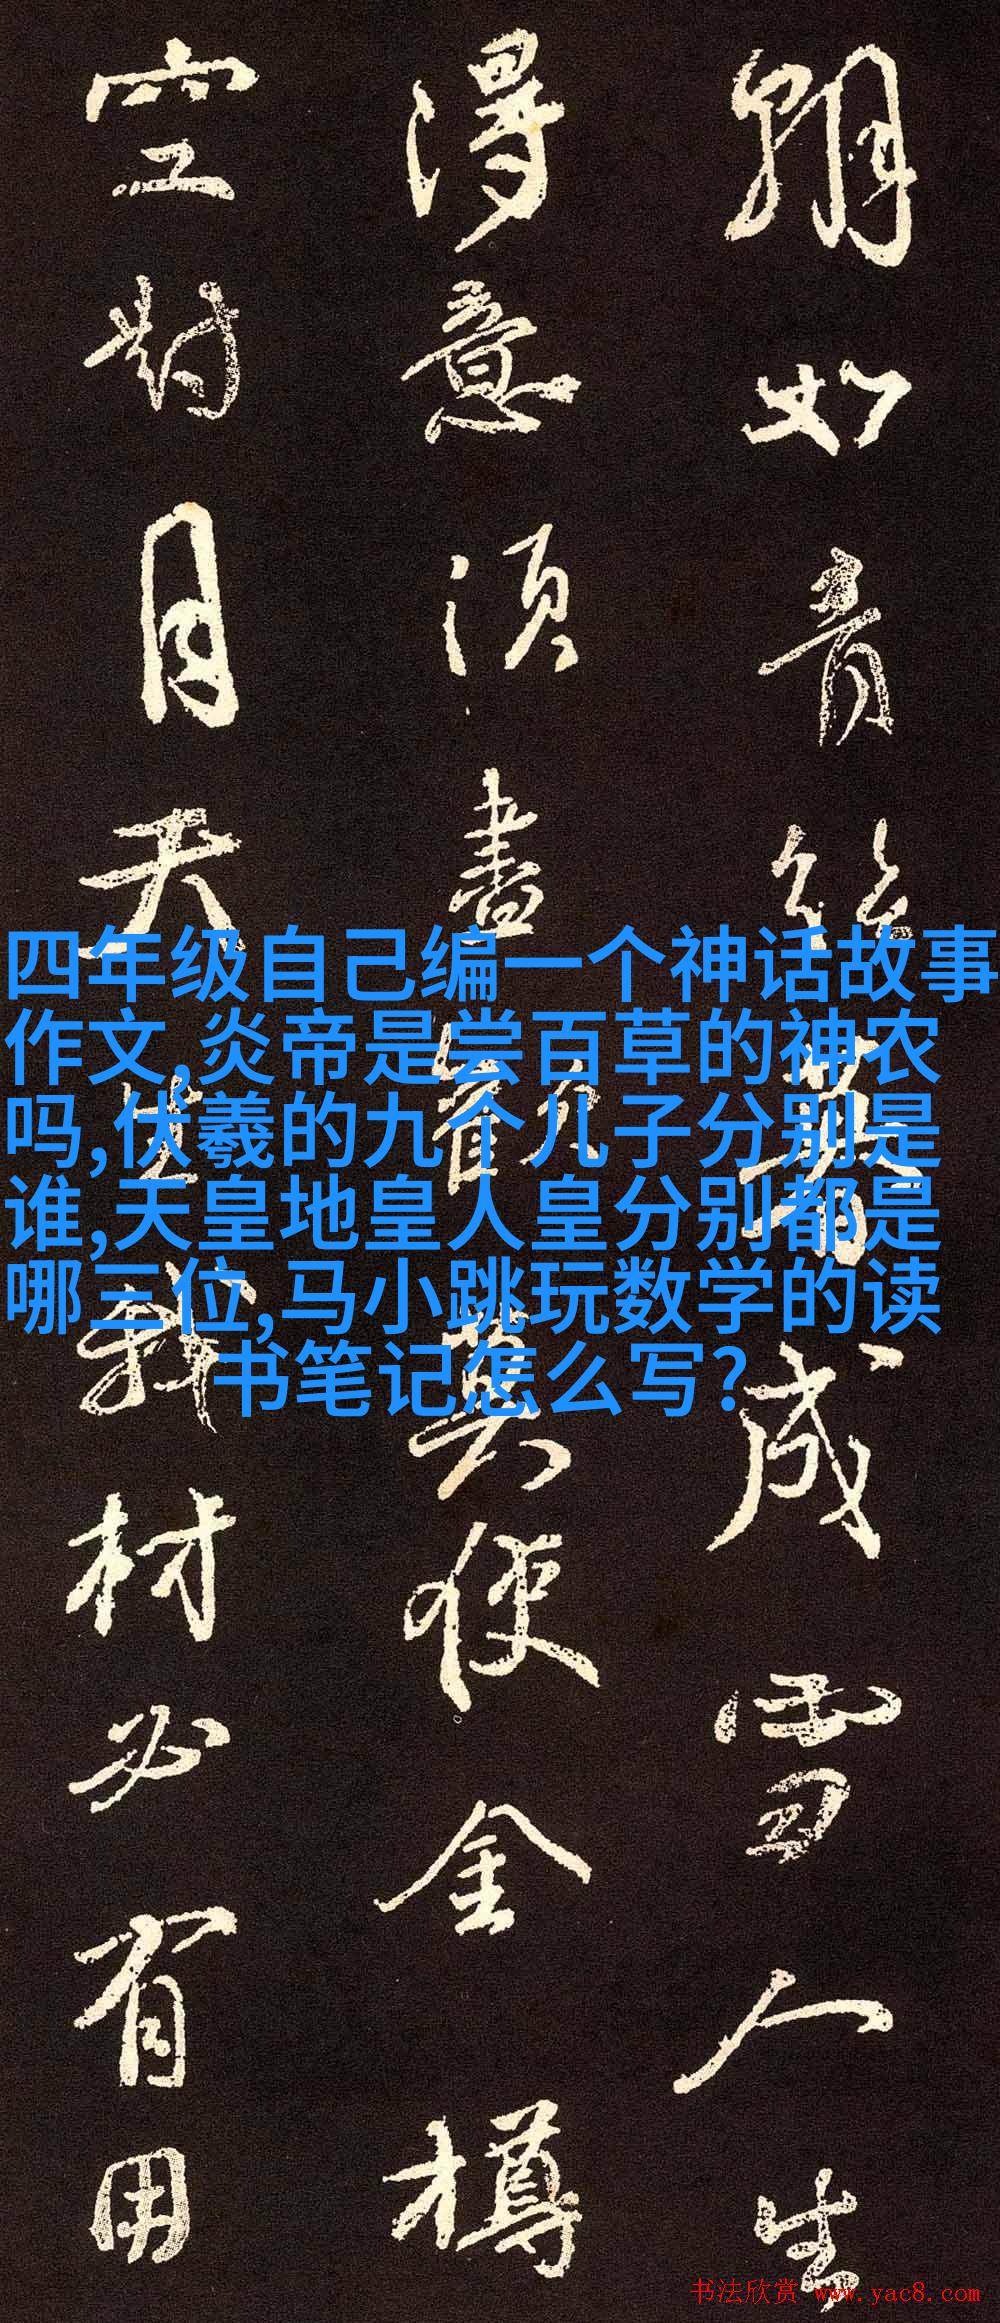 朝如青絲暮成雪人生
得意須盡歡莫使金樽
空對月天生我材必有用
四年级自己编一个神话故事
作文,炎帝是尝百草的神农
吗,伏羲的九个儿子分别是
谁,天皇地皇人皇分别都是
哪三位,马小跳玩数学的读
书笔记怎么写?
书法欣赏 www.yac8.com